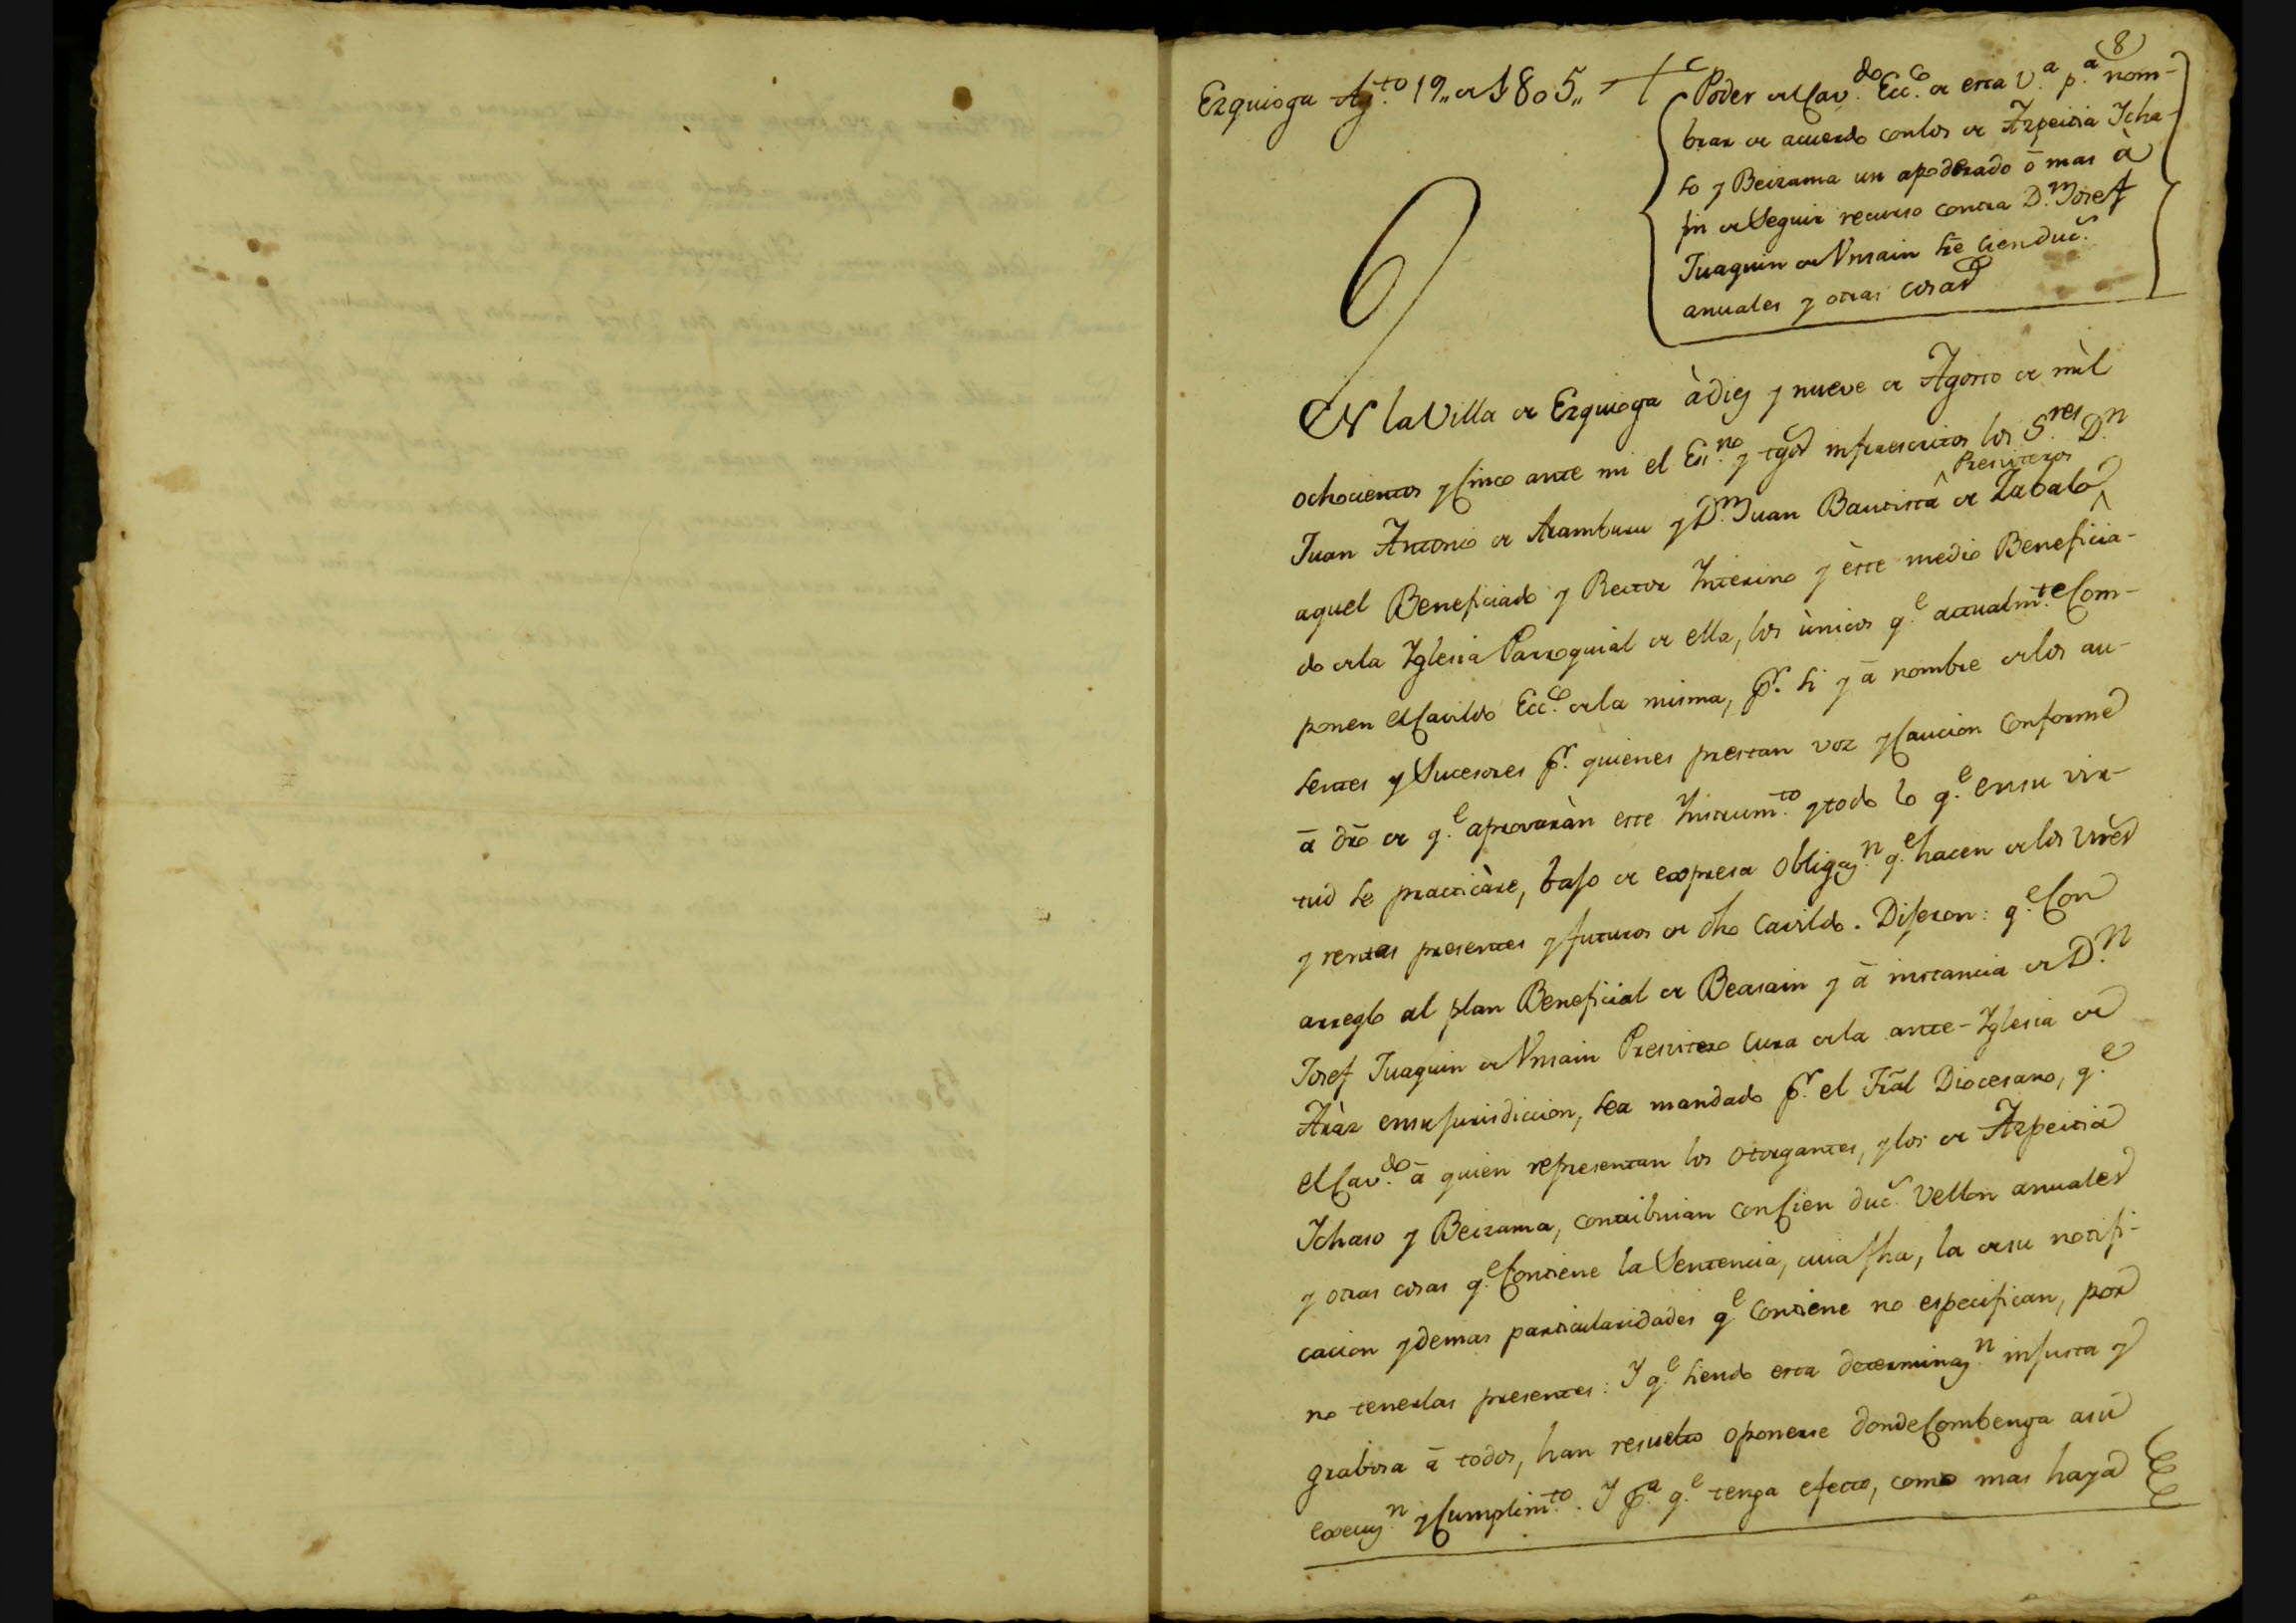 8
Ezquioga Ag.to 19,, de 1805,, +
Poder del Cav.do Ecc.co de esta V.a p.a nom-
brar de acuerdo con los de Azpeitia Icha-
so y Beizama un apoderado ō mas à
fin de Seguir recurso contra D.n Josef
Juaquin de Vnsain sr̃e Cien duc.s
anuales y otras cosas
6
EN la Villa de Ezquioga à diez y nueve de Agosto de mìl
ochocientos y Cinco ante mi el Es.no y tgõs infraescritos los S.res D.n
Presviteros
Juan Antonio de Aramburu y D.n Juan Bautista de Zabalo^
aquel Beneficiado y Rector Interino y èste medio Beneficia-
do de la Yglesia Parroquial de ella, los ùnicos q.e actualm.te Com-
ponen el Cavildo Ecc.co de la misma, p.r si y ā nombre de los au-
sentes y Sucesores p.r quienes prestan voz y Caucion Conforme
ā dr̃o de q.e aprovaràn este Instrum.to y todo lo q.e en su vir-
tud se practicàre, bajo de expresa obligaz.n q.e hacen de los vñes
y rentas presentes y futuros de dho Cavildo. Dijeron: q.e Con
arreglo al plan Beneficial de Beasain y ā instancia de D.n
Josef Juaquin de Vnsain Presvitero Cura de la ante-Yglesia de
Aràz en su jurisdiccion, sea mandado p.r el Tr̃al Diocesano, q.e
el Cav.do ā quien representan los otorgantes, y los de Azpeitia
Ichaso y Beizama, contribuian con Cien duc.s vellon anuales
y otras cosas q.e Contiene la Sentencia, cuia fha, la de su notifi-
cacion y demas particularidades q.e Contiene no especifican, por
no tenerlas presentes: Y q.e siendo esta determinaz.n injusta y
grabosa ā todos, han resuelto oponerse donde Combenga a su
execuz.n y Cumplim.to. Y p.a q.e tenga efecto, como mas haya